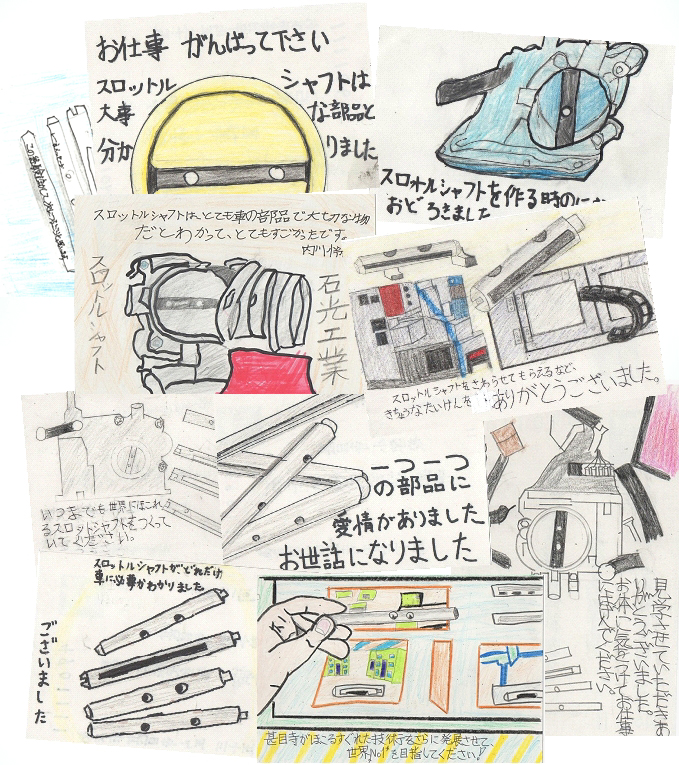 お仕事 がんばって下さい
スロットル シャフトは
大事 な部品と
分か りました
スロットルシャフトを作る時の
おどろきました
スロットルシャフトは、とても車の部品で大切な物
だとわかって、とてもすごかったです。
スロットルシャフト
石光工業
スロットルシャフトをさわらせてもらえるなど、
きちょうなたいけんを ありがとうございました。
いつまでも世界にほこれ
るスロットシャフトをつくって
いてください。
一つ一つ
の部品に
愛情がありました
お世話になりました
見学させていただきあ
りがとうございました。
お体に気をつけてお仕事
にはげんでください。
スロットルシャフトがどれだけ
車に必要かわかりました
ございました
甚目寺がほこるすぐれた技術をさらに発展させて、
世界No1を目指してください!!